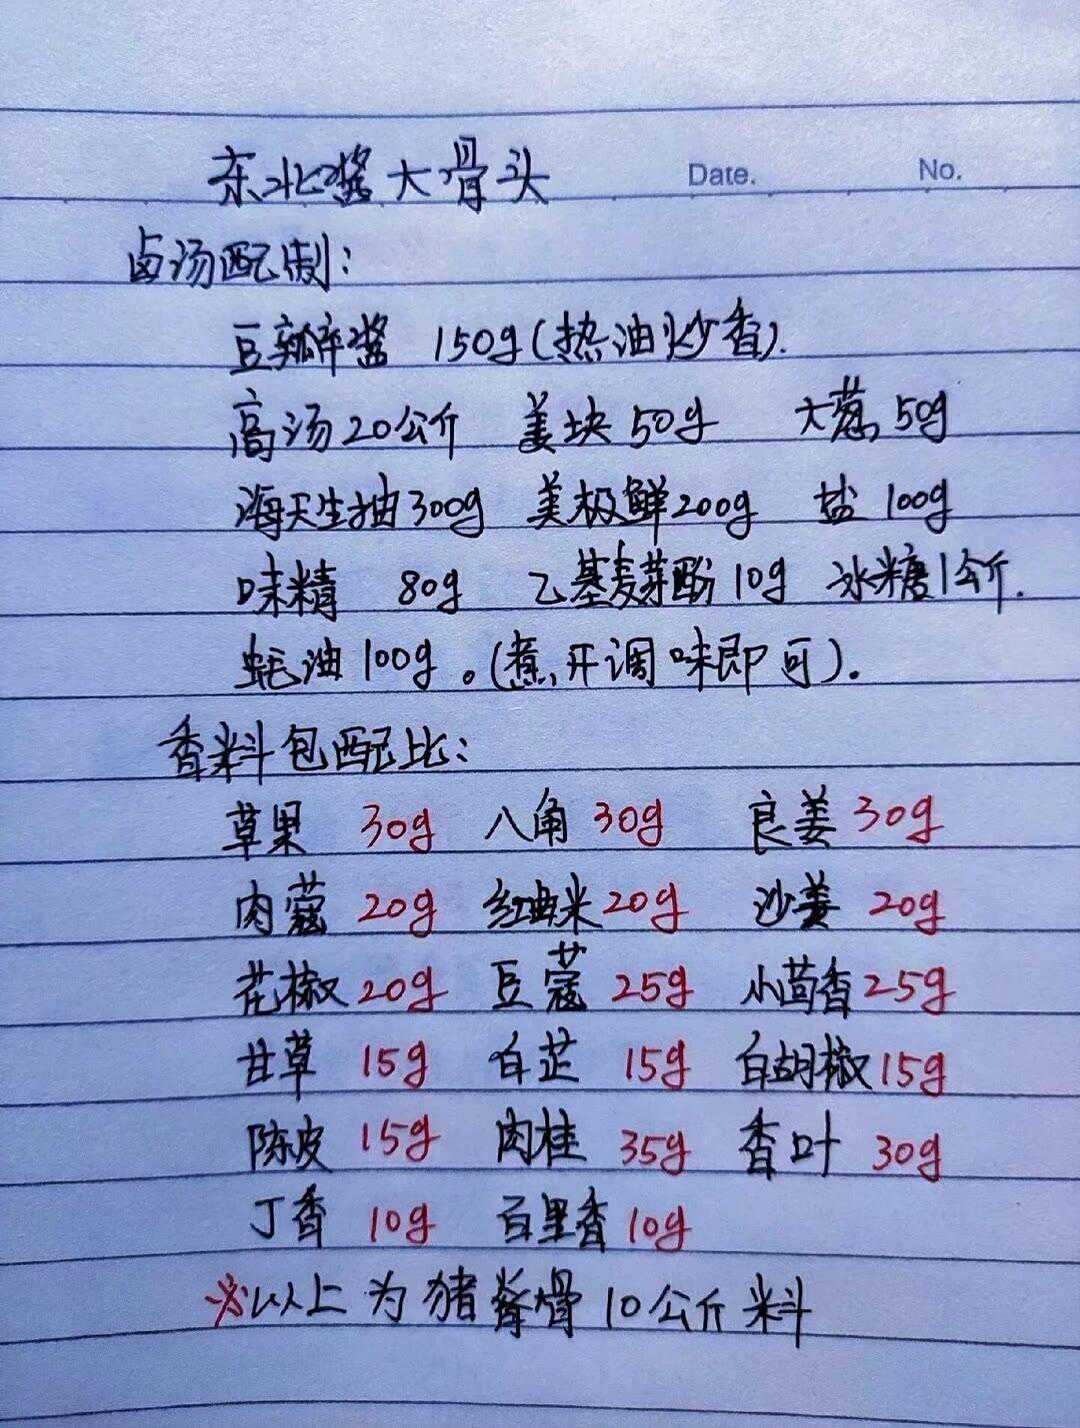 东北酱大骨头 Date. No.
卤汤配制：
豆瓣酱 150g（热油炒香）.
高汤20公斤 姜块50g 大葱50g
海天生抽300g 美极鲜200g 盐100g
味精 80g 乙基麦芽酚10g 冰糖1公斤.
蚝油100g。（煮开调味即可）.
香料包配比：
草果 30g 八角 30g 良姜30g
肉蔻 20g 红曲米20g 沙姜 20g
花椒20g 豆蔻 25g 小茴香25g
甘草 15g 白芷 15g 白胡椒15g
陈皮 15g 肉桂 35g 香叶 30g
丁香 10g 百里香10g
※以上为猪脊骨10公斤料